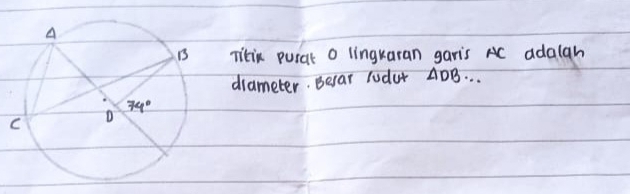 A
B
Titik pusat O lingkaran garis AC adalah
diameter. Besar sudut ADB...
74°
D
C